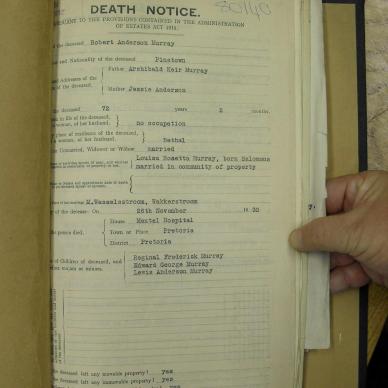 80140
DEATH NOTICE.
PURSUANT TO THE PROVISIONS CONTAINED IN THE ADMINISTRATION
OF ESTATES ACT
of the deceased Robert Anderson Murray
and Nationality of the deceased Pinetown
Addresses of the of the deceased. Father Archibald Keir Murray
Mother Jessie Anderson
deceased 72 years 2 months.
in life of the deceased, woman, of her husband. no occupation
place of residence of the deceased, a woman, of her husband. Bethal
Unmarried, Widower or Widow married
Louisa Rosetta Murray, born Solomons
married in community of property
M.Wesselsstroom, Wakkerstroom
of the decease: On 26th November 19 30
House Mental Hospital
the person died. Town or Place Pretoria
District Pretoria
of Children of deceased, and Reginal Frederick Murray
whether majors or minors. Edward George Murray
Lewis Anderson Murray
the deceased left any movable property? yes
the deceased left any immovable property? yes